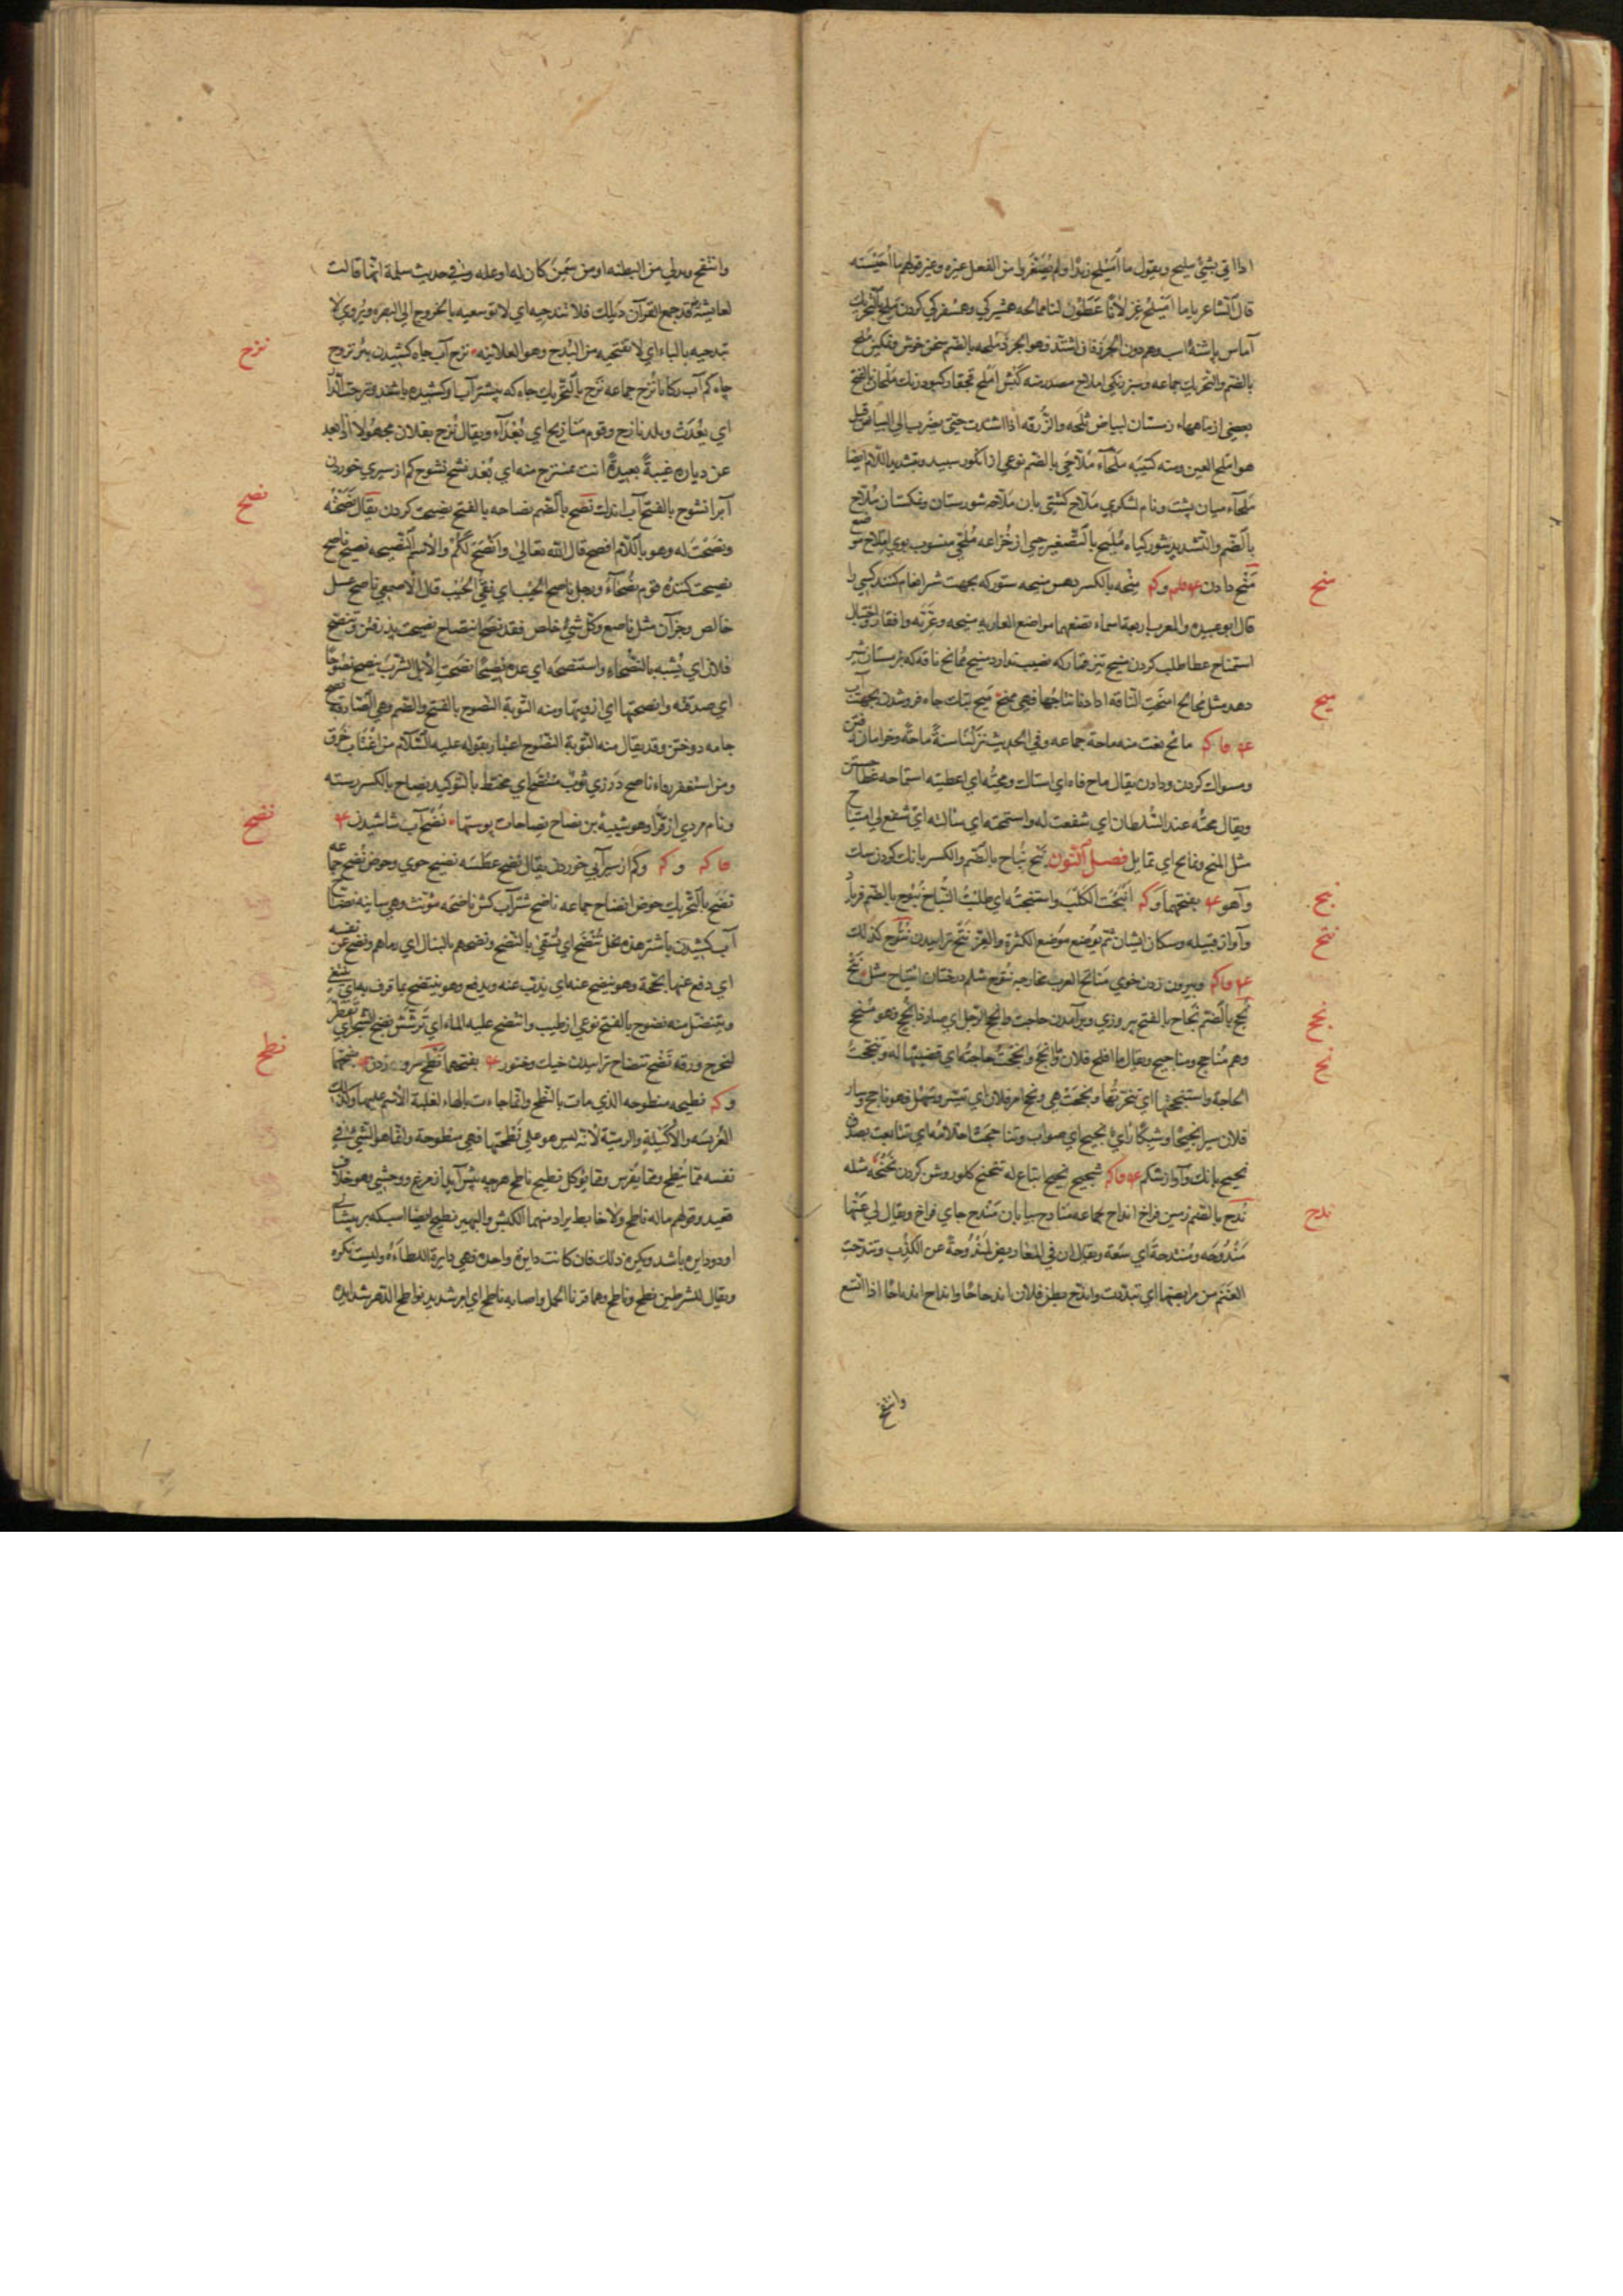 اذا اتي بشئ مليح ويقول ما اُمَيْلِح زيدًا ولم يُصَغَّر من الفعل غيره وغير قولهم ما اُحَيْسَنه
قال الشاعر ياما اُمَيْلِح غزلانًا عَطَوْنَ لنا ممالحه همشيركي وهمسفركي كردن مَلَح بالتحريك
آماس پاشنهٔ اسب وهو دون الجرذ فاذا اشتد فهو الجرذ مُلحه بالضم سخن خوش ونمكين مُلَح
بالضم والتحريك جماعه وسبز رنكي املاح مصدر منه كَبْش اَملَح
بعضي از ماههاء زمستان لبياض ثلجه والزُّرقه اذا اشتدت حتي يضرب الي البياض قيل
هو املح العين ومنه كتيبه مَلْحَآء مُلّاحي بالضم نوعي از انكور سپيد وبتشديد اللام ايضا
مَلْحَآء ميان پشت ونام لشكري مَلّاح كشتي بان مَلّاحه شورستان ونمكستان مُلّاح
بالضم والتشديد شور كياه مُلَيح بالتصغير حيي از خُزاعه مُلَحي منسوب بوي املاح موضع
منح
مَنْح دادن مِنْحه بالكسر دهش منيحه ستور كه بجهت شير انعام كنند كسي را
قال ابو عبيده وللعرب اربعة اسماء تضعها مواضع العاريه منيحه وعَرِيّه وافقار واخبال
استمناح عطا طلب كردن منيح تير قمار كه نصيب ندارد منيح مُمانح ناقه كه بزمستان شير
ميح
دهد مثل مُجالح امنحت الناقه اذا دنا نتاجُها فهي ممنح مَيح بتك چاه فرو شدن بجهت آب
مائح نعت منه ماحة جماعه وفي الحديث نزلنا ستةً ماحةً وخرامان رفتن
ومسواك كردن ودادن يقال ماح فاه اي استاك ومِحْتُه اي اعطيته استماحه عطا جستن
ويقال مِحْتُه عند السُّلطان اي شفعت له واستمحته اي سالته ان يشفع لي امتياح
مثل الميح وتمايح اي تمايل فصل النون نَبْح نُباح بالضم والكسر بانك كردن سك
نبح
وآهو بفتحهما وكه انبحت الكلب واستنبحتُه اي طلبت النُّباح نُبوح بالضم فرياد
نتح
وآواز قبيله وسكان ايشان ثم يوضع موضع الكثرة والعِزّ نَتْح ترابيدن نُتُوح كذلك
وبيرون زدن خوي مَناتح العرق مخارجه نُتوح شلم درختان انتياح مثل نَتْح
نجح
نُجْح بالضم نَجاح بالفتح پيروزي وبرآمدن حاجت انجح الرجل اي صار ذا نُجح وهو مُنجح
نجح
وهم مَناجح ومناجيح ويقال ما افلح فلان وما انجح وانجحتُ حاجتُه اي قضيتها له وتنجحتُ
الحاجة واستنجحتها اي تنجّزتُها ونجحت هي ونجح امر فلان اي تيسّر وتسهّل فهو ناجح وسار
فلان سيرا نجيحًا وشيكًا رَأيٌ نجيح اي صواب وتناجحت احلامُه اي تتابعت بصدق
نحيح بانك وآواز شكم شحيح نحيح اتباع له تنحنح كلو روشن كردن نَحْنَحَه مثله
ندح
نُدْح بالضم زمين فراخ انداح جماعه مَنادح بيابان مُنْتَدَح جاي فراخ ويقال لي عَنْها
مَنْدُوحَه ومُنْتدحة اي سَعَة ويقال ان في المعاريض لَمَنْدُوحةً عن الكذب وتندّحت
الغَنَم من مرابضها اي تبدّدت واندحّ بطن فلان اندحاحًا وانداح اندياحًا اذا اتسع
وانتفخ
وانتفخ وتدلي من البطنه او من سَمِنَ كان له او علّه وفي حديث سلمة انها قالت
لعائشة قد جمع القرآن ذيلك فلا تندحيه اي لا توسعيه بالخروج الي البصره ويُروي لا
نزح
تبدحيه بالباء اي لا تفتحيه من البَدح وهو العلانيه نزح آب چاه كشيدن بئر نزوح
چاه كم آب ركايا نُزُح جماعه نَزَح بالتحريك چاه كه بيشتر آب او كشيده باشند ونزحت الدار
اي بَعُدَت وبلد نازح وقوم منازيح اي بُعَدآء ويقال نُزِح بفلان مجهولا اذا بعد
عن دياره غيبةً بعيدةً انت بمنتزح منه اي بُعد نشح نشوح كم از سيري خوردن
نصح
آبرا نشوح بالفتح آب اندك نُصْح بالضم نصاحه بالفتح نصيحت كردن يقال نَصَحْتُه
ونصحتُ له وهو باللام افصح قال الله تعالي وانصح لكم والاسم النصيحه نصيح ناصح
نصيحت كننده قوم نُصَحآءُ ورجل ناصح الجَيْب اي نقيّ الجَيْب قال الاصمعي ناصح عسل
خالص وجز آن مثل ناصع وكل شئ خلص فقد نصح انتصاح نصيحت پذيرفتن وتنصّح
فلان اي تشبّه بالنصحاء واستنصحه اي عدّه نصيحًا نصحت الابل الشرب ينصح نصوحًا
اي صدقته وانصحتها اي ارويتها ومنه التوبة النصوح بالفتح والضم وهي الصادقة نصح
جامه دوختن وقد يقال منه التوبة النصوح اعتبارا بقوله عليه السلام من اغتاب خرق
ومن استغفر رفاء ناصح دَرزي ثوبٌ مُنَصَّح اي مخيّط بالتوكيد نِصاح بالكسر رشته
نضح
ونام مردي از قُرّا وهو شيبة بن نصاح نصاحات پوستها نَضْح آب شاشيدن
وكم از سيرآبي خوردن يقال نضح عطشه نضيح خوي وحوض نُضُح جماعه
نَضَح بالتحريك حوض انضاح جماعه ناضح شترآب كش ناضحه مؤنث وهي سانيه نضح
آب كشيدن باشتر هذه نخل تُنْضَح اي تُسقي بالنضح ونضحهم بالنبال اي رماهم ونضح عن نفسه
اي دفع عنها بحجّة وهو ينضح عنه اي يذبّ عنه ويدفع وهو ينتضح مما قرف به اي ينتفي
ويتنصّل منه نضوح بالفتح نوعي از طيب وانتضح عليه الماء اي تَرشّش نضح الشجر اي تفطّر
نطح
لتخرج ورقه نَضْح تنضاح ترابيدن خيك وخنور بفتحهما نَطْح سرو زدن بفتحهما
وكه نطيحه منطوحه الذي مات بالنطح وانما جاءت بالهاء لغلبة الاسم عليها وكذلك
الفَرِيسَه والاكِيلَة والرميّة لانه ليس هو علي نَطَحْتها فهي منطوحة وانما هو الشئ في
نفسه مما يُنطح ومما يُفرس ومما يؤكل نطيح ناطح هرچه پيش آيد از مرغ ووحشي وهو خلاف
قعيد وقولهم ماله ناطح ولا خابط يراد منهما الكبش والبعير نطيح ايضا اسپ كه بر پيشاني
او دو دايره باشد ويكره ذلك فان كانت دايرة واحده فهي دايرة اللطاءة وليست تكره
ويقال للشرطين نطح وناطح وهما قرنا الحمل واصابه ناطح اي امر شديد نواطح الدهر شدايده